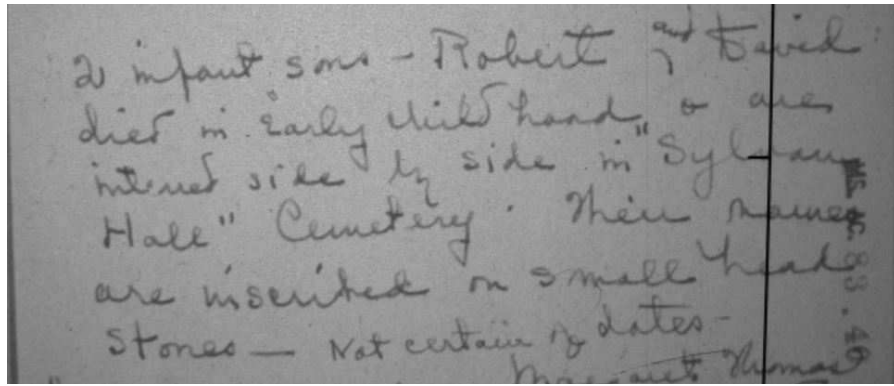 2 infant sons - Robert and David
died in Early Child hood & are
interred side by side in "Sylvan
Hall" Cemetery. Their names
are inscribed on small head
stones — Not certain of dates -
Margaret Thomas